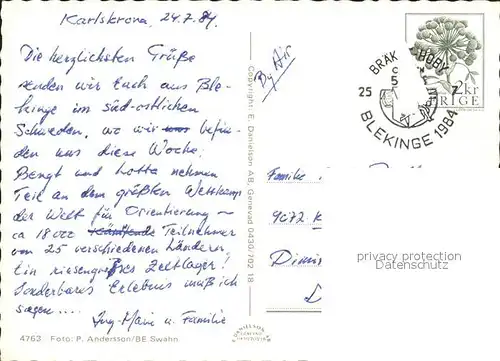 Karlskrona, 24.7.84
Die herzlichsten Grüße
senden wir Euch aus Ble-
kinge im süd-östlichen
Schweden, wo wir uns befin-
den uns diese Woche.
Bengt und Lotta nehmen
Teil an dem größten Wettkamp
der Welt für Orientierung –
ca 18000 Kämpfende Teilnehmer
von 25 verschiedenen Länderen
Ein riesengroßes Zeltlager!
Sonderbares Erlebens muß ich
sagen....
Ing-Marie u. Familie
4763 Foto: P. Andersson/BE Swahn
Copyright: E. Danielson AB, Genevad 0430/702 18
DANIELSON AB
GENEVAD
By Air
BRÄK HOBY
9
5
25 7
BLEKINGE 1984
2 kr
SVERIGE
Familie
9072 K
privacy protection
Datenschutz